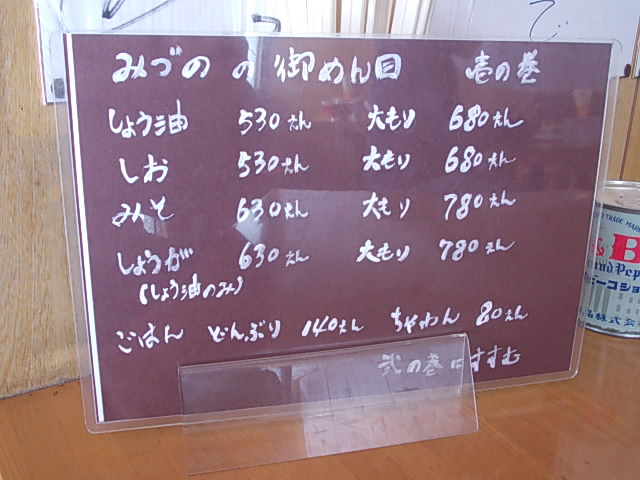 みづの の御めん目 壱の巻
しょう油 530えん 大もり 680えん
しお 530えん 大もり 680えん
みそ 630えん 大もり 780えん
しょうが 630えん 大もり 780えん
(しょう油のみ)
ごはん どんぶり 140えん ちゃわん 80えん
弐の巻にすすむ
で
TRADE MARK
& B
and Pep
ビーコショ
品株式